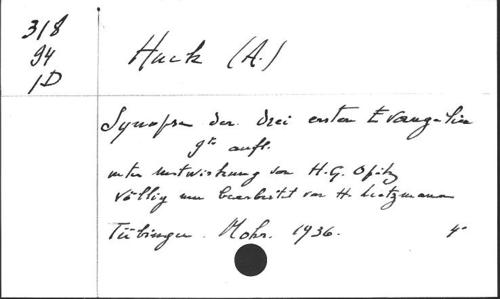 318
94
1D
Huck (A.)
Synopse der drei ersten Evangelien
9te aufl.
unter mitwirkung von H.G. Opitz
völlig neu bearbeitet von H. Lietzmann
Tübingen. Mohr. 1936. 4°